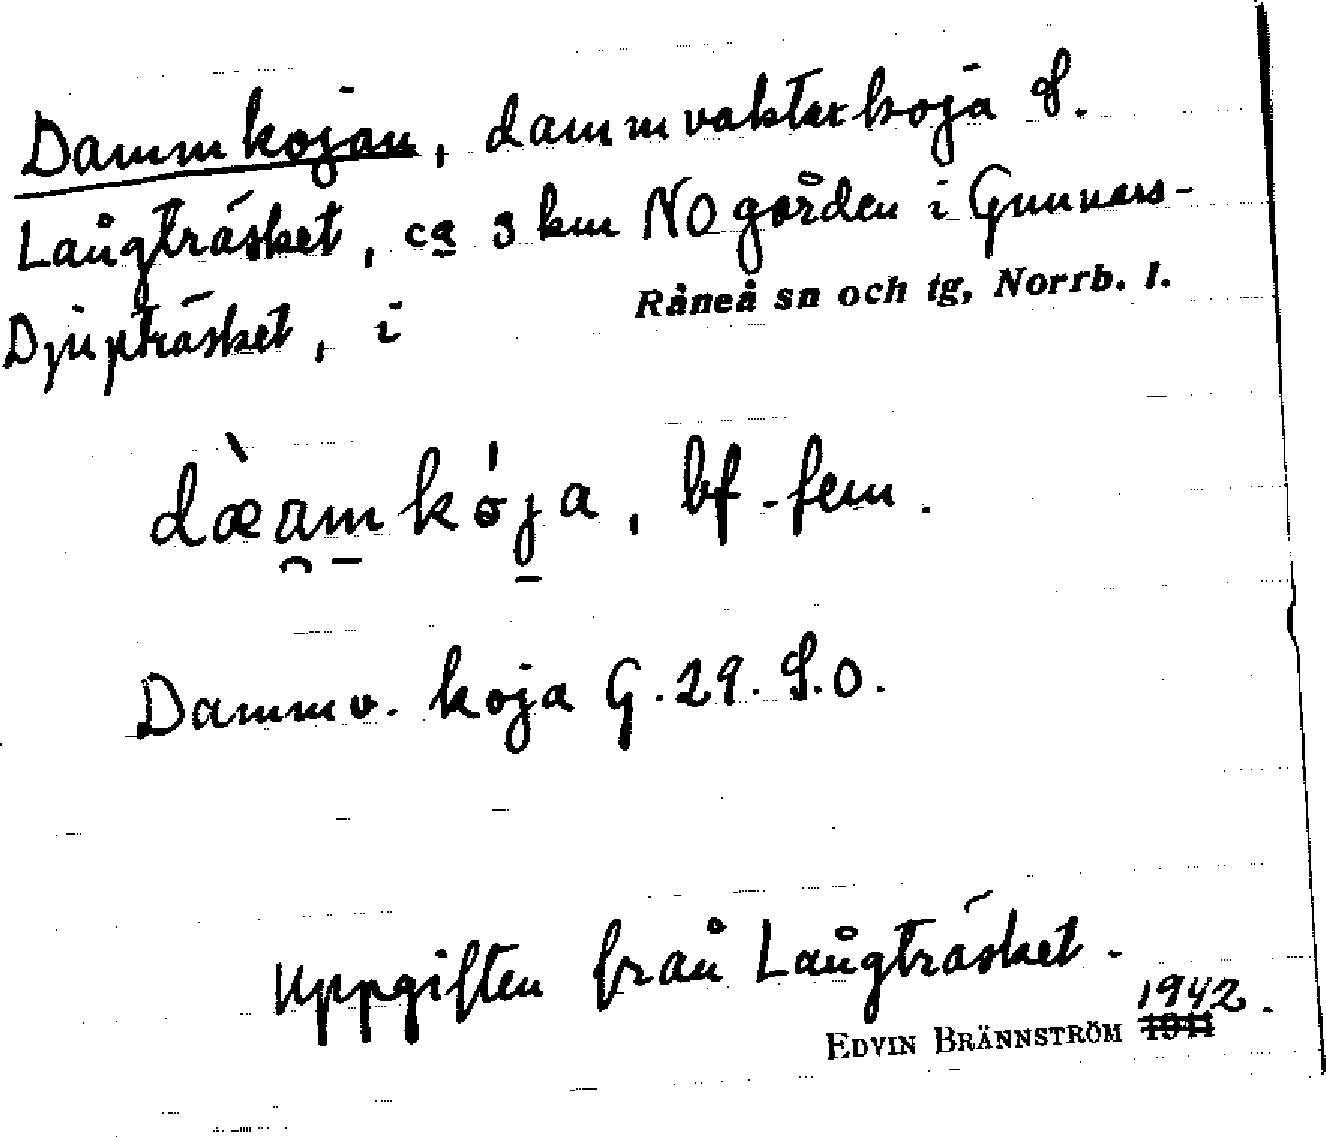 Dammkojan, dammvakterkoja S.
Långträsket, ca 3 km NO gården i Gunnars-
Djupträsket, i Råneå sn och tg, Norrb. l.
dæ̀a̯m̲kǿj̲a, bf. fem.
Dammv. koja G. 29. S.O.
Uppgiften från Långträsket.
EDVIN BRÄNNSTRÖM 1941 1942.